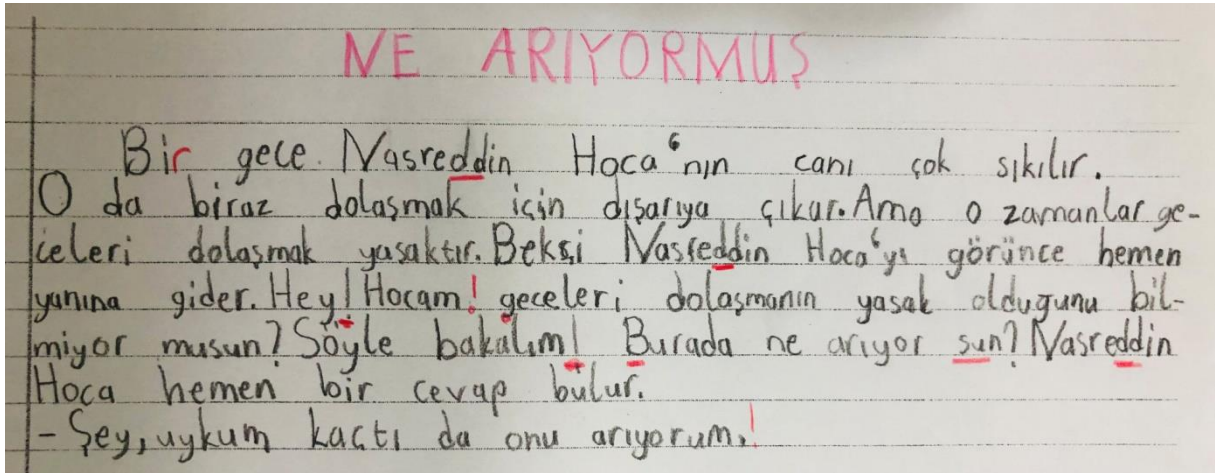 NE ARIYORMUŞ
Bir gece Nasreddin Hoca'nın canı çok sıkılır.
O da biraz dolaşmak için dışarıya çıkar. Ama o zamanlar ge-
celeri dolaşmak yasaktır. Bekçi Nasreddin Hoca'yı görünce hemen
yanına gider. Hey! Hocam! geceleri dolaşmanın yasak olduğunu bil-
miyor musun? Söyle bakalım! Burada ne arıyor sun? Nasreddin
Hoca hemen bir cevap bulur.
- Şey, uykum kaçtı da onu arıyorum.!